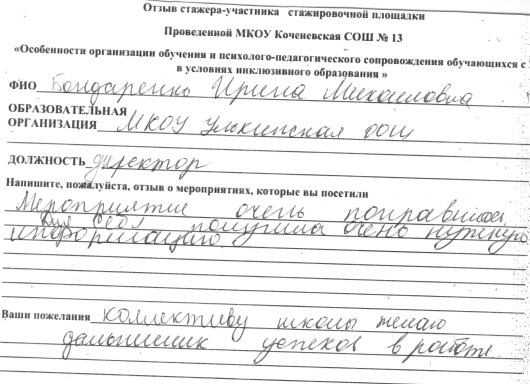 Отзыв стажера-участника стажировочной площадки
Проведенной МКОУ Коченевская СОШ № 13
«Особенности организации обучения и психолого-педагогического сопровождения обучающихся с
в условиях инклюзивного образования »
ФИО Бондаренко Ирина Михайловна
ОБРАЗОВАТЕЛЬНАЯ
ОРГАНИЗАЦИЯ МКОУ ООШ
ДОЛЖНОСТЬ директор
Напишите, пожалуйста, отзыв о мероприятиях, которые вы посетили
Мероприятие очень понравилось,
для себя получила очень нужную
информацию
Ваши пожелания коллективу школы желаю
дальнейших успехов в работе